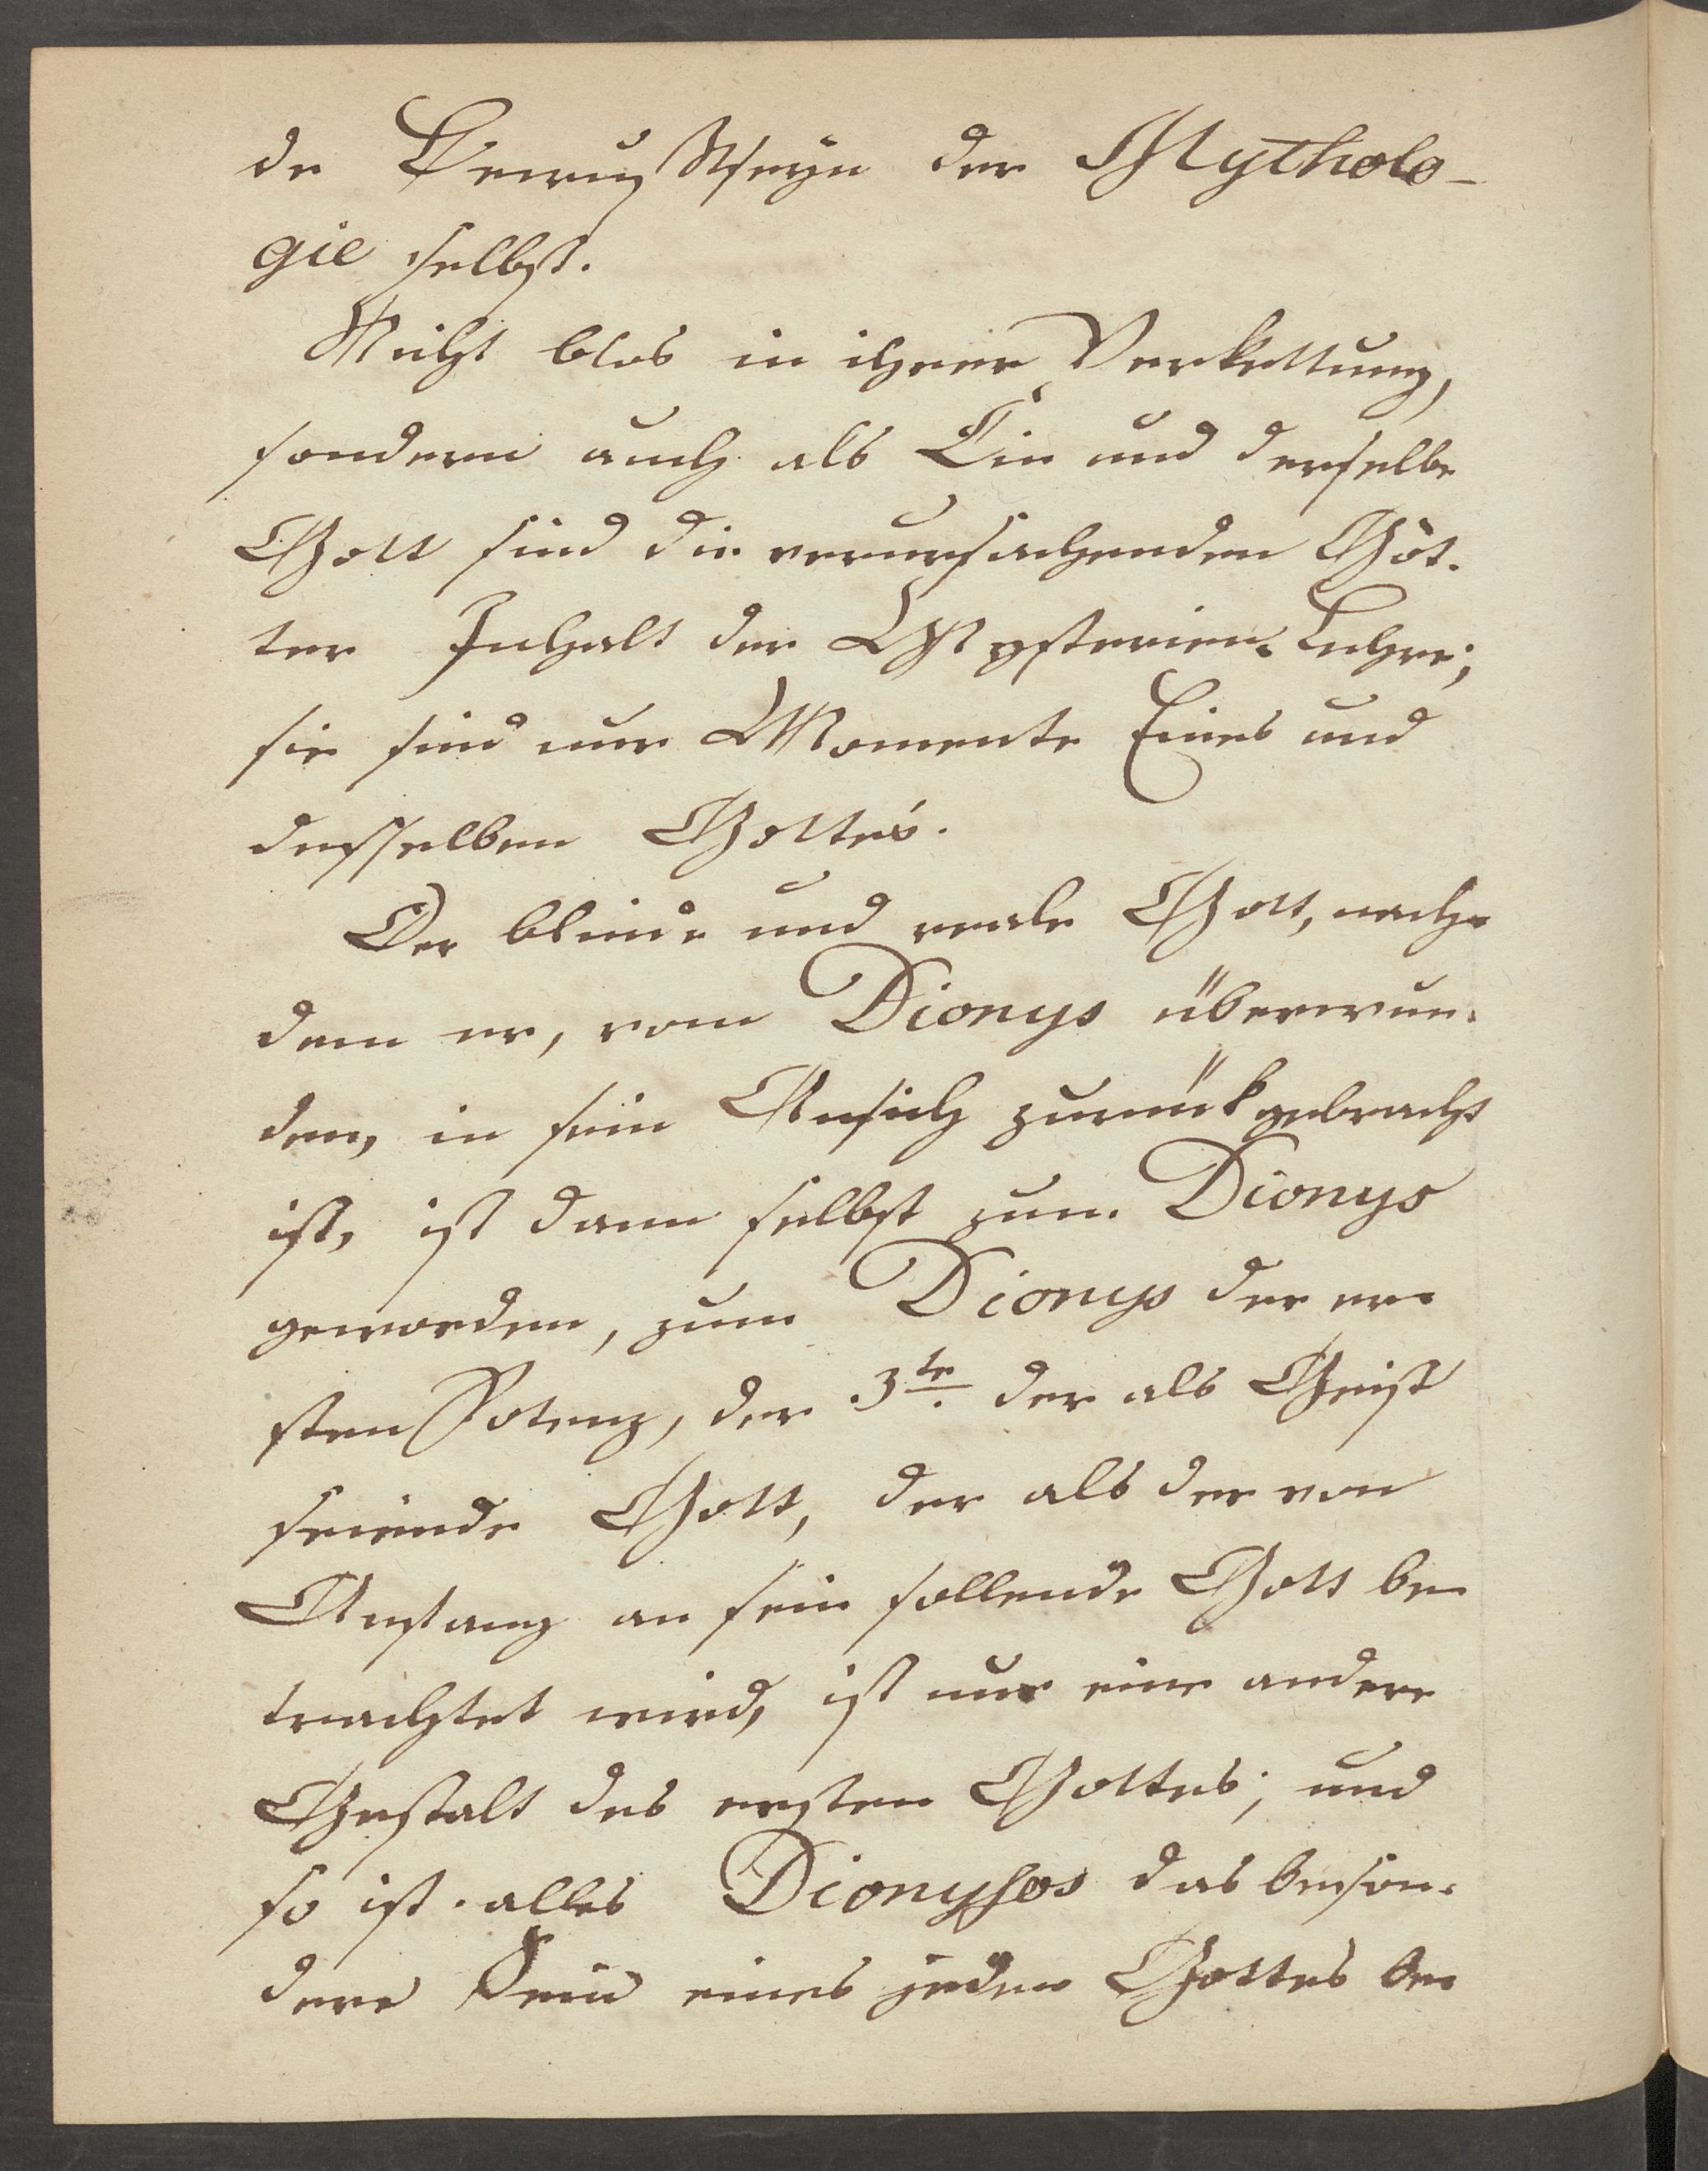 de Bewußtseyn der Mytholo-
gie selbst.
Nicht blos in ihrer Verkettung,
sondern auch als Ein und derselbe
Gott sind die verursachenden Göt-
ter Inhalt der Mysterien-Lehre;
sie sind nur Momente Eines und
desselben Gottes.
Der blinde und reale Gott, nach-
dem er, vom Dionys überwun-
den, in sein Ansich zurückgebracht
ist, ist dann selbst zum Dionys
geworden, zum Dionys der er-
sten Potenz, der 3te. der als Geist
seiende Gott, der als der von
Anfang an sein sollende Gott be-
trachtet wird, ist nur eine andere
Gestalt des ersten Gottes; und
so ist alles Dionysos das beson-
dere Sein eines jeden Gottes be-